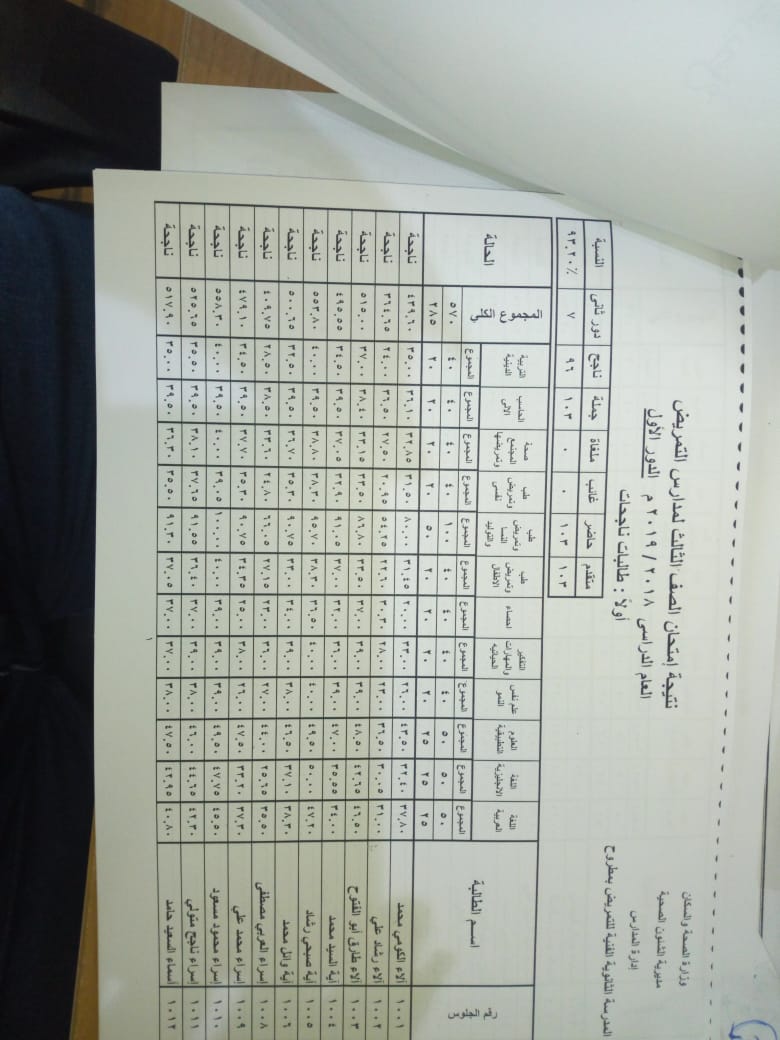 وزارة الصحة والسكان
مديرية الشئون الصحية
إدارة المدارس
المدرسة الثانوية الفنية للتمريض بمطروح
نتيجة إمتحان الصف الثالث لمدارس التمريض
العام الدراسى ٢٠١٨ / ٢٠١٩ م الدور الأول
أولاً : طالبات ناجحات
متقدم حاضر غائب ملغاة جملة ناجح دور ثانى النسبة
١٠٣ ١٠٣ ٠ ٠ ١٠٣ ٩٦ ٧ ٩٣.٢٠٪
رقم الجلوس اسم الطالبة اللغة العربية اللغة الانجليزية العلوم التطبيقية علم نفس النمو التفكير والمهارات الحياتيه احصاء طب وتمريض الاطفال طب وتمريض النسا والتوليد طب وتمريض نفسى صحة المجتمع وتمريضها الحاسب الالى التربية الدينية المجموع الكلي الحالة
المجموع المجموع المجموع المجموع المجموع المجموع المجموع المجموع المجموع المجموع المجموع المجموع
٥٠ ٥٠ ٥٠ ٤٠ ٤٠ ٤٠ ٤٠ ١٠٠ ٤٠ ٤٠ ٤٠ ٤٠ ٥٧٠
٢٥ ٢٥ ٢٥ ٢٠ ٢٠ ٢٠ ٢٠ ٥٠ ٢٠ ٢٠ ٢٠ ٢٠ ٢٨٥
١٠٠١ آلاء الكومي محمد ٣٧.٨٠ ٣٢.٤٠ ٤٣.٥٠ ٢٦.٠٠ ٣٣.٠٠ ٢٠.٠٠ ٣١.٤٥ ٨٠.٠٠ ٣١.٥٠ ٣٢.٨٥ ٣٦.١٠ ٣٥.٠٠ ٤٣٩.٦٠ ناجحة
١٠٠٢ آلاء رشاد علي ٣١.٠٠ ٣٠.٠٥ ٣٦.٥٠ ٢٣.٠٠ ٢٨.٠٠ ٣٠.٣٠ ٢٢.٦٠ ٥٤.٢٥ ٢٠.٩٥ ٢٧.٥٠ ٣٦.٥٠ ٢٤.٠٠ ٣٦٤.٦٥ ناجحة
١٠٠٣ آلاء طارق أبو الفتوح ٤٦.٥٠ ٤٢.٦٥ ٤٨.٥٠ ٣٩.٠٠ ٣٩.٠٠ ٣٧.٠٠ ٣٣.٥٠ ٨٦.٨٠ ٣٣.٥٠ ٣٣.١٥ ٣٨.٤٠ ٣٧.٠٠ ٥١٥.٠٠ ناجحة
١٠٠٤ آية السيد محمد ٣٤.٠٠ ٣٥.٥٥ ٤٧.٠٠ ٣٩.٠٠ ٣٦.٠٠ ٣٢.٠٠ ٣٧.٠٠ ٩١.٠٥ ٣٢.٩٠ ٣٧.٠٥ ٣٩.٥٠ ٣٤.٥٠ ٤٩٥.٥٥ ناجحة
١٠٠٥ آية صبحي رشاد ٤٧.٢٠ ٥٠.٠٠ ٤٩.٥٠ ٤٠.٠٠ ٤٠.٠٠ ٣٦.٥٠ ٣٨.٣٠ ٩٥.٧٠ ٣٨.٣٠ ٣٨.٨٠ ٣٩.٥٠ ٤٠.٠٠ ٥٥٣.٨٠ ناجحة
١٠٠٦ آية وائل محمد ٣٨.٣٠ ٣٧.١٠ ٤٦.٥٠ ٣٨.٠٠ ٣٩.٠٠ ٣٤.٠٠ ٣٣.٠٠ ٩٠.٧٥ ٣٥.٣٠ ٣٦.٧٠ ٣٩.٥٠ ٣٢.٥٠ ٥٠٠.٦٥ ناجحة
١٠٠٨ إسراء العربي مصطفى ٣٥.٥٠ ٢٥.٦٥ ٤٤.٠٠ ٢٧.٠٠ ٣٦.٠٠ ٢٣.٠٠ ٢٧.١٥ ٦٦.٠٥ ٢٤.٨٠ ٣٣.٦٠ ٣٨.٥٠ ٢٨.٥٠ ٤٠٩.٧٥ ناجحة
١٠٠٩ إسراء محمد علي ٣٧.٣٠ ٣٣.٢٠ ٤٧.٥٠ ٢٦.٠٠ ٣٨.٠٠ ٢٥.٠٠ ٣٤.٣٥ ٩٠.٧٥ ٣٥.٣٠ ٣٧.٧٠ ٣٩.٥٠ ٣٤.٥٠ ٤٧٩.١٠ ناجحة
١٠١٠ إسراء محمود مسعود ٤٥.٥٠ ٤٧.٧٥ ٤٩.٥٠ ٣٩.٠٠ ٣٩.٠٠ ٣٩.٠٠ ٤٠.٠٠ ١٠٠.٠٠ ٣٩.٠٥ ٤٠.٠٠ ٣٩.٥٠ ٤٠.٠٠ ٥٥٨.٣٠ ناجحة
١٠١١ إسراء ناجح متولي ٤٢.٣٠ ٤٤.٦٥ ٤٦.٠٠ ٣٨.٠٠ ٣٩.٠٠ ٣٧.٠٠ ٣٦.٤٠ ٩١.٥٥ ٣٧.٦٥ ٣٨.١٠ ٣٩.٥٠ ٣٥.٥٠ ٥٢٥.٦٥ ناجحة
١٠١٢ أسماء السعيد حامد ٤٠.٨٠ ٤٢.٩٥ ٤٧.٥٠ ٣٨.٠٠ ٣٧.٠٠ ٣٧.٠٠ ٣٧.٠٥ ٩١.٣٠ ٣٥.٥٠ ٣٦.٣٠ ٣٩.٥٠ ٣٥.٠٠ ٥١٧.٩٠ ناجحة
١